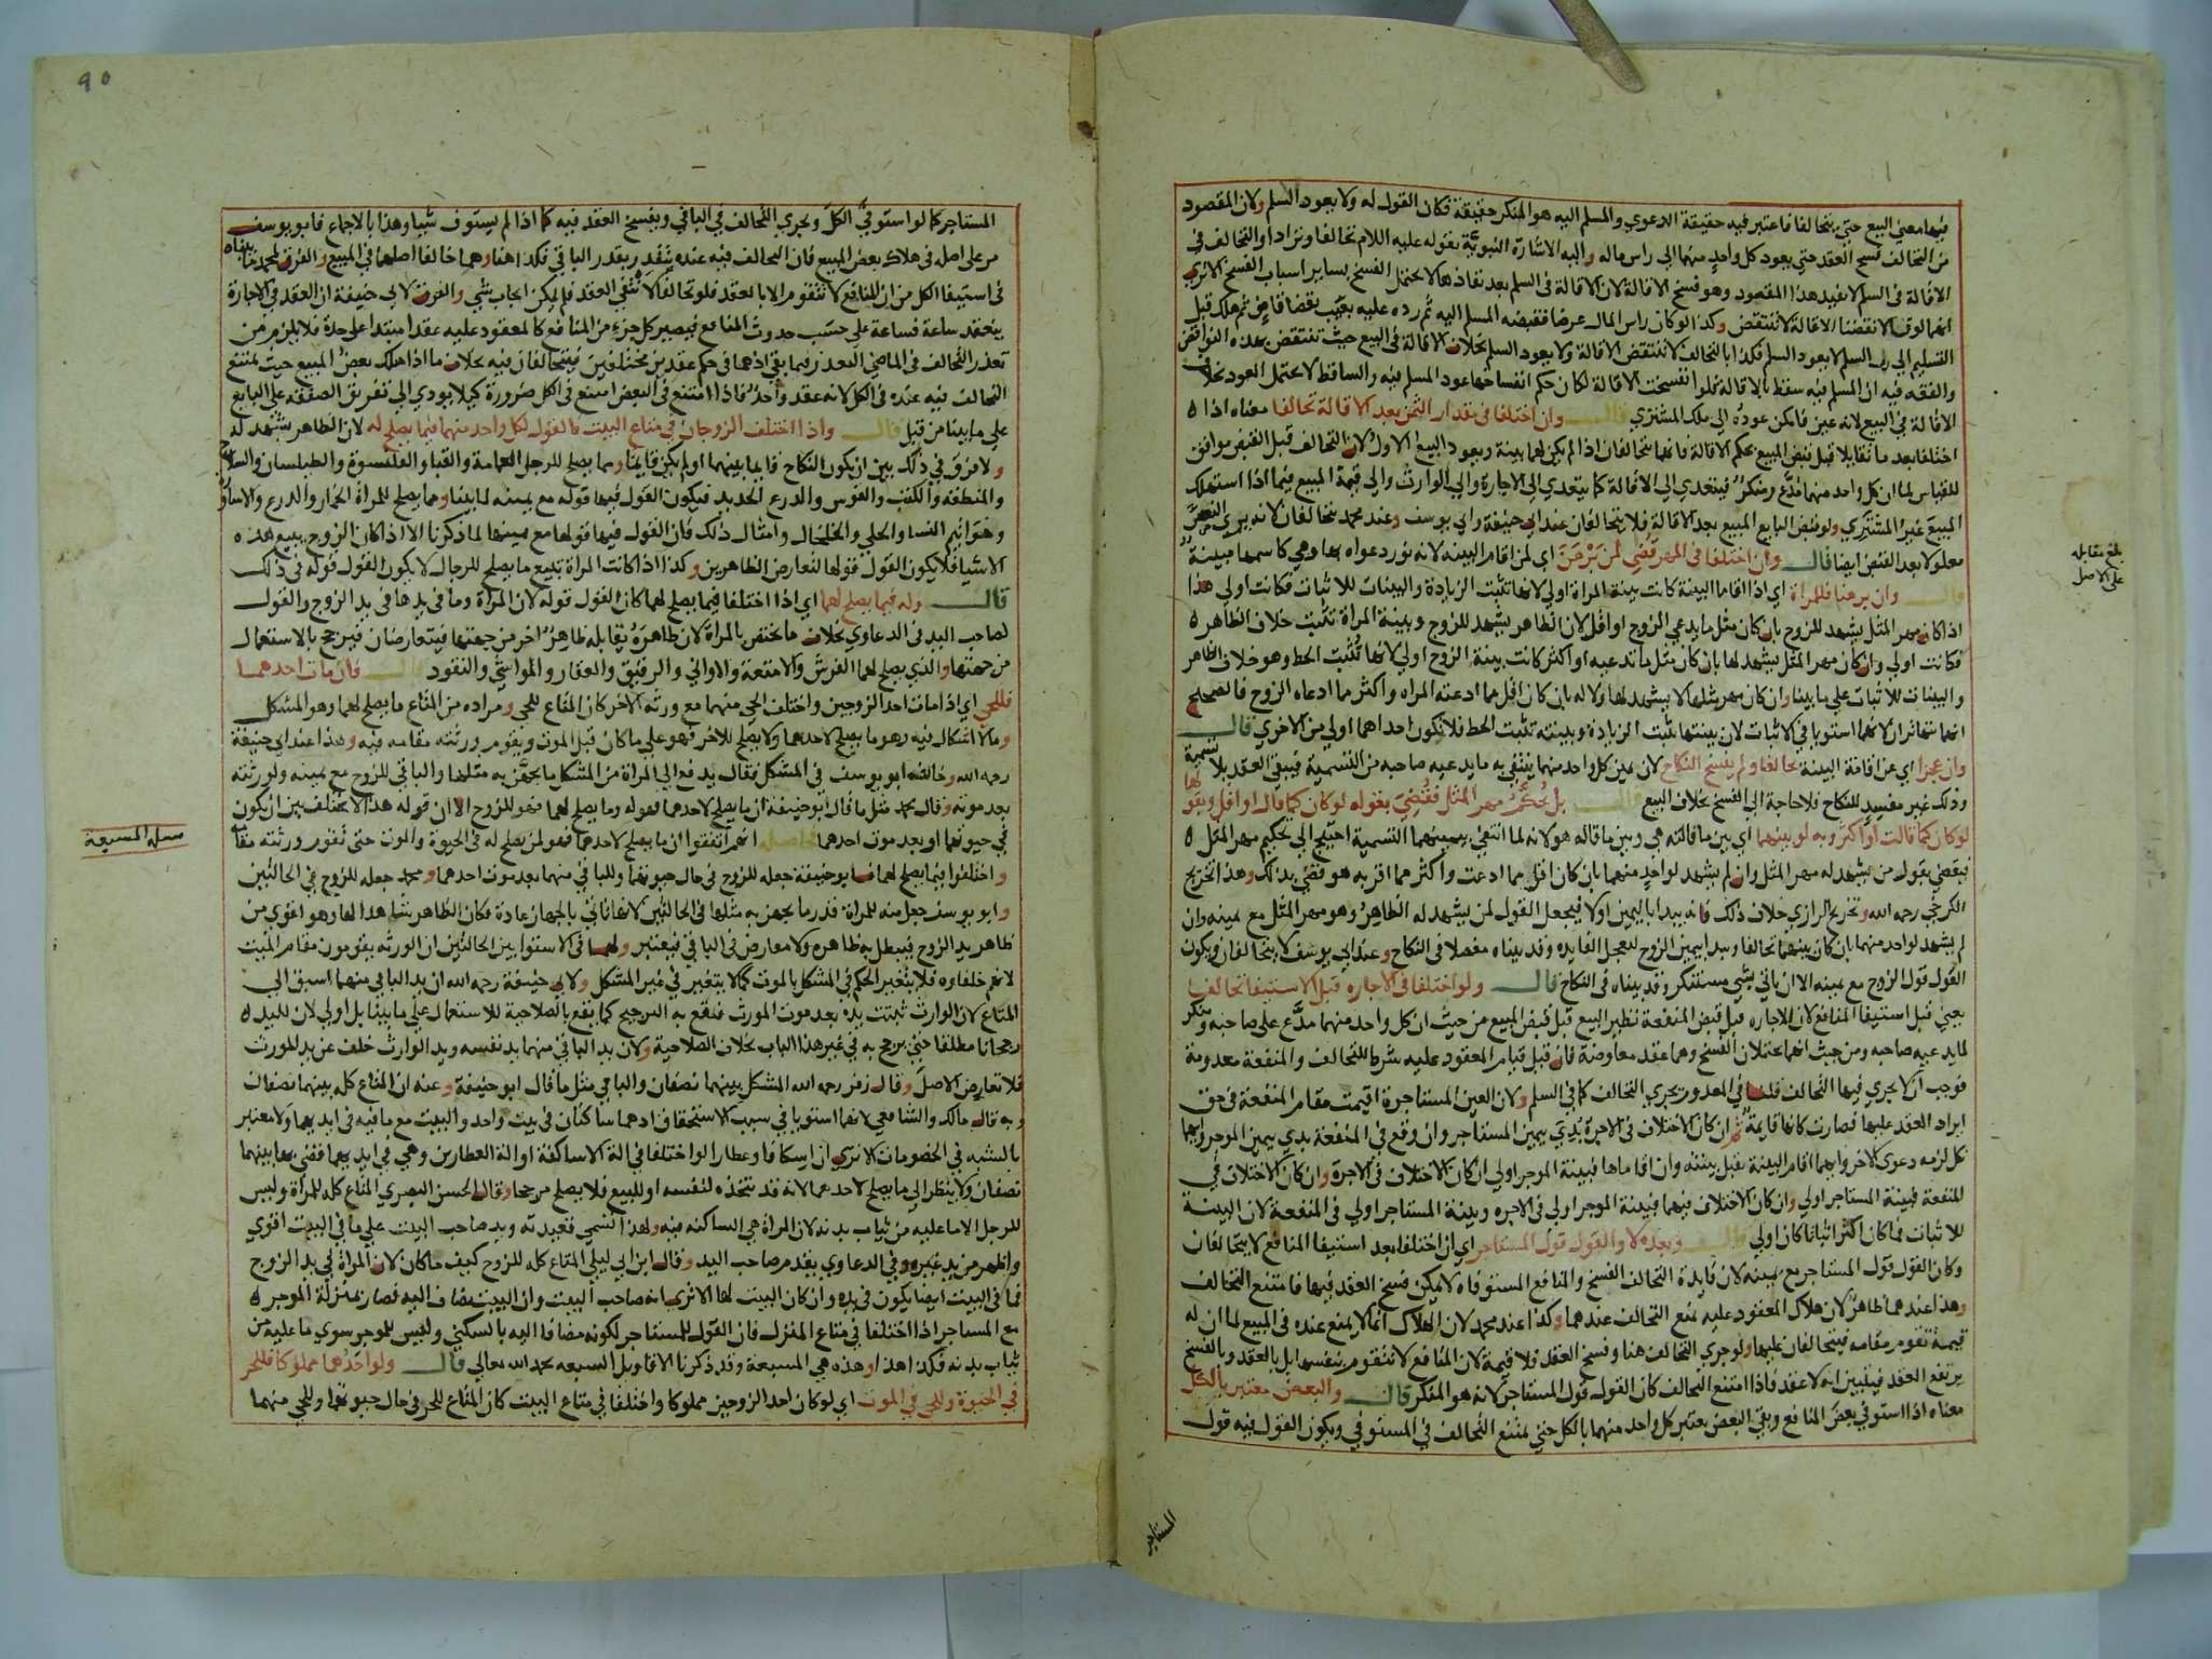 فيها معنى البيع حتى يتحالفا فاعتبر فيه حقيقة الدعوي والمسلم اليه هو المنكر حقيقة فكان القول له ولا يعود السلم ولان المقصود
من التحالف فسخ العقد حتى يعود كل واحد منهما الى راس ماله واليه الاشارة النبوية بقوله عليه السلام تحالفا وترادا والتحالف في
الاقالة في السلم لا يفيد هذا المقصود وهو فسخ الاقالة لان الاقالة في السلم بعد نفاذها لا تحتمل الفسخ بساير اسباب الفسخ الا ترى
انهما لو قالا نقضنا الاقالة لا تنتقض وكذا لو كان راس المال عرضا فقبضه المسلم اليه ثم رده عليه بعيب بقضا قاض ثم هلك قبل
التسليم الى رب السلم لا يعود السلم فكذا بالتحالف لا تنتقض الاقالة ولا يعود السلم بخلاف الاقالة في البيع حيث تنتقض بهذه النواقض
والفقه فيه ان المسلم فيه سقط بالاقالة فلو انفسخت الاقالة لكان حكم انفساخها عود المسلم فيه والساقط لا يحتمل العود بخلاف
الاقالة في البيع لانه عين فامكن عوده الى ملك المشتري قال وان اختلفا في مقدار الثمن بعد الاقالة تحالفا معناه اذا
اختلفا بعد ما تقايلا قبل قبض المبيع بحكم الاقالة فانهما يتحالفان اذا لم يكن لهما بينة ويعود البيع الاول لان التحالف قبل القبض موافق
للقياس لما ان كل واحد منهما مدع ومنكر فيتعدي الى الاقالة كما يتعدي الى الاجارة والى الوارث والى قيمة المبيع فيما اذا استهلك
المبيع غير المشتري ولو قبض البايع المبيع بعد الاقالة فلا يتحالفان عند ابي حنيفة وابي يوسف وعند محمد يتحالفان لانه يرى النص
معلولا بعد القبض ايضا قال وان اختلفا في المهر قضي لمن برهن اي لمن اقام البينة لانه نور دعواه بها وهي كاسمها مبينة
قال وان برهنا فللمراة اي اذا اقاما البينة كانت بينة المراة اولي لانها تثبت الزيادة والبينات للاثبات فكانت اولي هذا
اذا كان مهر المثل يشهد للزوج بان كان مثل ما يدعي الزوج او اقل لان الظاهر يشهد للزوج وبينة المراة تثبت خلاف الظاهر
فكانت اولي وان كان مهر المثل يشهد لها بان كان مثل ما تدعيه او اكثر كانت بينة الزوج اولي لانها تثبت الحط وهو خلاف الظاهر
والبينات للاثبات على ما بينا وان كان مهر مثلها لا يشهد لها ولا له بان كان اقل مما ادعته المراه واكثر مما ادعاه الزوج فالصحيح
انهما تتهاتران لانهما استويا في الاثبات لان بينتها تثبت الزيادة وبينته تثبت الحط فلا تكون احداهما اولي من الاخري قال
وان عجزا اي عن اقامة البينة تحالفا ولم يفسخ النكاح لان يمين كل واحد منهما ينتفي به ما يدعيه صاحبه من التسمية فيبقى العقد بلا تسمية
وذلك غير مفسد للنكاح فلا حاجة الى الفسخ بخلاف البيع قال بل يحكم مهر المثل فقضي بقوله لو كان كما قال او اقل وبقولها
لو كان كما قالت او اكثر وبه لو بينهما اي بين ما قالته هي وبين ما قاله هو لانه لما انتفى بيمينهما التسمية احتيج الى تحكيم مهر المثل
فيقضي بقول من يشهد له مهر المثل وان لم يشهد لواحد منهما بان كان اقل مما ادعت واكثر مما اقر به هو قضى بذلك وهذا تخريج
الكرخي رحمه الله وتخريج الرازي خلاف ذلك فانه يبدا باليمين اولا فيجعل القول لمن يشهد له الظاهر وهو مهر المثل مع يمينه وان
لم يشهد لواحد منهما بان كان بينهما تحالفا ويبدا بيمين الزوج لتعجل الفايده وقد بيناه مفصلا في النكاح وعند ابي يوسف لا يتحالفان ويكون
القول قول الزوج مع يمينه الا ان ياتي بشي مستنكر وقد بيناه في النكاح قال ولو اختلفا في الاجاره قبل الاستيفا تحالفا
يعني قبل استيفا المنافع لان الاجاره قبل قبض المنفعة نظير البيع قبل قبض المبيع من حيث ان كل واحد منهما مدع على صاحبه ومنكر
لما يدعيه صاحبه ومن حيث انهما يحتملان الفسخ وهما عقد معاوضة فان قيل قيام المعقود عليه شرط للتحالف والمنفعة معدومة
فوجب ان لا يجري فيها التحالف قلنا في المعدوم يجري التحالف كما في السلم ولان العين المستاجرة اقيمت مقام المنفعة في حق
ايراد العقد عليها فصارت كانها قايمة ثم ان كان الاختلاف في الاجرة بدي بيمين المستاجر وان وقع في المنفعة بدي بيمين الموجر وايهما
نكل لزمه دعوى الاخر وايهما اقام البينة تقبل بينته وان اقاماها فبينة الموجر اولي ان كان الاختلاف في الاجرة وان كان الاختلاف في
المنفعة فبينة المستاجر اولي وان كان الاختلاف فيهما فبينة الموجر اولي في الاجره وبينة المستاجر اولي في المنفعة لان البينة
للاثبات فما كان اكثر اثباتا كان اولي قال وبعده لا والقول قول المستاجر اي ان اختلفا بعد استيفا المنافع لا يتحالفان
وكان القول قول المستاجر مع يمينه لان فايدة التحالف الفسخ والمنافع المستوفاه لا يمكن فسخ العقد فيها فامتنع التحالف
وهذا عندهما ظاهر لان هلاك المعقود عليه يمنع التحالف عندهما وكذا عند محمد لان الهلاك انما لا يمنع عنده في المبيع لما ان له
قيمة تقوم مقامه فيتحالفان عليها ولو جري التحالف هنا وفسخ العقد فلا قيمة لان المنافع لا تتقوم بنفسها بل بالعقد وبالفسخ
يرتفع العقد فيتبين انه لا عقد فاذا امتنع التحالف كان القول قول المستاجر لانه هو المنكر قال والبعض معتبر بالكل
معناه اذا استوفى بعض المنافع وبقي البعض يعتبر كل واحد منهما بالكل حتى يمتنع التحالف في المستوفي ويكون القول فيه قول
المستاجر
بلغ مقابله
على الاصل
٩٥
المستاجر كما لو استوفى الكل ويجري التحالف في الباقي ويفسخ العقد فيه كما اذا لم يستوف شيا وهذا بالاجماع فابو يوسف
مر على اصله في هلاك بعض المبيع فان التحالف فيه عنده يتقدر بقدر الباقي فكذا هنا وهما خالفا اصلهما في المبيع والفرق لمحمد ما بيناه
في استيفا الكل من ان المنافع لا تتقوم الا بالعقد فلو تحالفا لا تنفى العقد فلم يمكن ايجاب شي والفرق لابي حنيفة ان العقد في الاجارة
ينعقد ساعة فساعة على حسب حدوث المنافع فيصير كل جزء من المنافع كالمعقود عليه عقدا مبتدا على حدة فلا يلزم من
تعذر التحالف في الماضي التعذر فيما بقي اذ هما في حكم عقدين مختلفين فيتحالفان فيه بخلاف ما اذا هلك بعض المبيع حيث يمتنع
التحالف فيه عنده في الكل لانه عقد واحد فاذا امتنع في البعض امتنع في الكل ضرورة كيلا يودي الى تفريق الصفقه على البايع
على ما بينا من قبل قال واذا اختلف الزوجان في متاع البيت فالقول لكل واحد منهما فيما يصلح له لان الظاهر يشهد له
ولا فرق في ذلك بين ان يكون النكاح قايما بينهما او لم يكن قايما وما يصلح للرجل العمامة والقبا والقلنسوة والطيلسان والسلاح
والمنطقه والكتب والقوس والدرع الحديد فيكون القول فيها قوله مع يمينه لما بينا وما يصلح للمراة الخمار والدرع والاساور
وخواتيم النسا والحلي والخلخال وامثال ذلك فان القول فيها قولها مع يمينها لما ذكرنا الا اذا كان الزوج يبيع هذه
الاشيا فلا يكون القول قولها لتعارض الظاهرين وكذا اذا كانت المراة تبيع ما يصلح للرجال لا يكون القول قوله في ذلك
قال وله فيما يصلح لهما اي اذا اختلفا فيما يصلح لهما كان القول قوله لان المراة وما في يدها في يد الزوج والقول
لصاحب اليد في الدعاوي بخلاف ما يختص بالمراة لان ظاهره يقابله ظاهر اخر من جهتها فيتعارضان فيرجح بالاستعمال
من جهتها والذي يصلح لهما الفرش والامتعة والاواني والرقيق والعقار والمواشي والنقود قال فان مات احدهما
فللحي اي اذا مات احد الزوجين واختلف الحي منهما مع ورثة الاخر كان المتاع للحي ومراده من المتاع ما يصلح لهما وهو المشكل
وما لا اشكال فيه وهو ما يصلح لاحدهما ولا يصلح للاخر فهو على ما كان قبل الموت ويقوم ورثته مقامه فيه وهذا عند ابي حنيفة
رحمه الله وخالفه ابو يوسف في المشكل فقال يدفع الى المراة من المشكل ما يجهز به مثلها والباقي للزوج مع يمينه ولورثته
بعد موته وقال محمد مثل ما قال ابو حنيفة ان ما يصلح لاحدهما فهو له وما يصلح لهما فهو للزوج الا ان قوله هذا لا يختلف بين ان يكون
في حيوتهما او بعد موت احدهما فحاصله انهم اتفقوا ان ما يصلح لاحدهما فهو لمن يصلح له في الحيوة والموت حتى تقوم ورثته مقامه
واختلفوا فيما يصلح لهما فابو حنيفة جعله للزوج في حال حيوتهما وللباقي منهما بعد موت احدهما ومحمد جعله للزوج في الحالتين
وابو يوسف جعل منه للمراة قدر ما يجهز به مثلها في الحالتين لانها تاتي بالجهاز عادة فكان الظاهر شاهدا لها وهو اقوي من
ظاهر يد الزوج فيبطل به ظاهره ولا معارض في الباقي فيعتبر ولهما في الاستوا بين الحالتين ان الورثه يقومون مقام الميت
لانهم خلفاوه فلا يتغير الحكم في المشكل بالموت كما لا يتغير في غير المشكل ولابي حنيفة رحمه الله ان يد الباقي منهما اسبق الى
المتاع لان الوارث ثبتت يده بعد موت المورث فيقع به الترجيح كما يقع بالصلاحية للاستعمال على ما بينا بل اولي لان لليد
رجحانا مطلقا حتى يرجح به في غير هذا الباب بخلاف الصلاحية ولان يد الباقي منهما يد نفسه ويد الوارث خلف عن يد المورث
فلا تعارض الاصل وقال زفر رحمه الله المشكل بينهما نصفان والباقي مثل ما قال ابو حنيفة وعنه ان المتاع كله بينهما نصفان
وبه قال مالك والشافعي لانهما استويا في سبب الاستحقاق اذ هما ساكنان في بيت واحد والبيت مع ما فيه في ايديهما ولا معتبر
بالشبه في الخصومات الا ترى ان اسكافا وعطارا لو اختلفا في الة الاساكفة او الة العطارين وهي في ايديهما فقضي بها بينهما
نصفان ولا ينظر الى ما يصلح لاحدهما لانه قد يتخذه لنفسه او للبيع فلا يصلح مرجحا وقال الحسن البصري المتاع كله للمراة وليس
للرجل الا ما عليه من ثياب بدنه لان المراة هي الساكنه فيه ولهذا تسمي قعيدته ويد صاحب البيت على ما في البيت اقوي
واظهر من يد غيره وفي الدعاوي يقدم صاحب اليد وقال ابن ابي ليلي المتاع كله للزوج كيف ما كان لان المراة في يد الزوج
فما في البيت ايضا يكون في يده وان كان البيت لها الا ترى انه صاحب البيت وان البيت يضاف اليه فصار بمنزلة الموجر
مع المستاجر اذا اختلفا في متاع المنزل فان القول للمستاجر لكونه مضافا اليه بالسكنى وليس للموجر سوي ما عليه من
ثياب بدنه فكذا هذا وهذه هي المسبعة وقد ذكرنا الاقاويل السبعه بحمد الله تعالى قال ولو احدهما مملوكا فللحر
في الحيوة وللحي في الموت اي لو كان احد الزوجين مملوكا واختلفا في متاع البيت كان المتاع للحر في حال حيوتهما وللحي منهما
مسله المسبعة